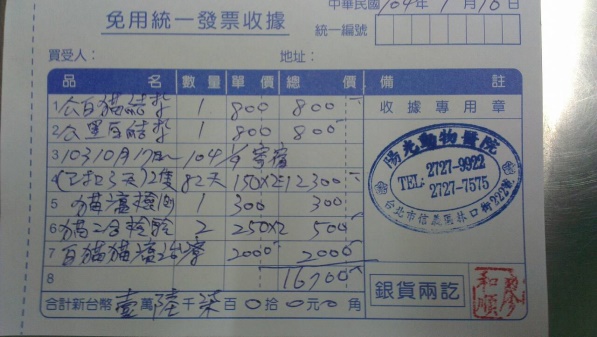 免用統一發票收據
中華民國104年1月10日
統一編號
買受人: 地址:
品名 數量 單價 總價 備註
1 公白貓結紮 1 800 800 收據專用章
2 公黑白結紮 1 800 800
3 103 10月17日~104 1/9 寄宿
4 (已扣3天)2隻 82天 150x2 12300
5 貓瘟檢測 1 300 300
6 貓二合檢驗 2 250x2 500
7 白貓貓瘟治療 2000 2000
8 16700
陽光動物醫院
TEL: 2727-9922
2727-7575
台北市信義區林口街222號
合計新台幣壹萬陸千柒百0拾0元0角
銀貨兩訖
和順